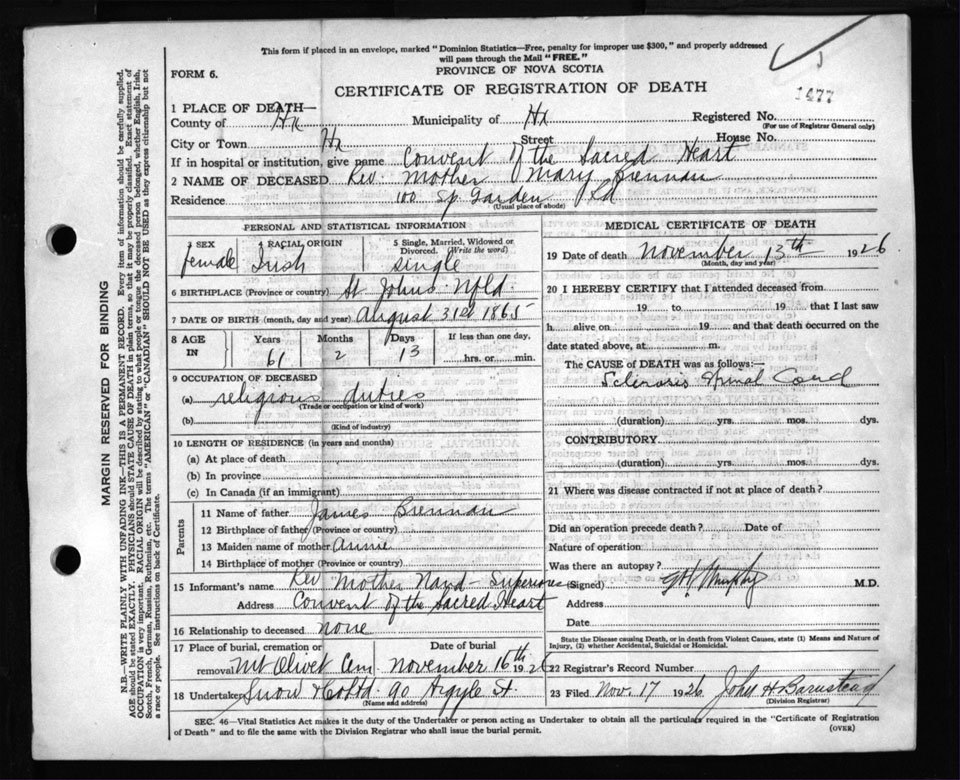 This form if placed in an envelope, marked "Dominion Statistics—Free, penalty for improper use $300," and properly addressed
will pass through the Mail "FREE."
PROVINCE OF NOVA SCOTIA
FORM 6.
CERTIFICATE OF REGISTRATION OF DEATH
1477
1 PLACE OF DEATH—
County of Hx Municipality of Hx Registered No.
(For use of Registrar General only)
City or Town Hx Street House No.
If in hospital or institution, give name Convent of the Sacred Heart
2 NAME OF DECEASED Rev. Mother Mary Brennan
Residence 100 Sp. Garden Rd
(Usual place of abode)
PERSONAL AND STATISTICAL INFORMATION
3 SEX 4 RACIAL ORIGIN 5 Single, Married, Widowed or
Divorced. (Write the word)
female Irish single
6 BIRTHPLACE (Province or country) St Johns Nfld.
7 DATE OF BIRTH (month, day and year) August 31st 1865
8 AGE IN Years Months Days If less than one day,
61 2 13 hrs. or min.
9 OCCUPATION OF DECEASED
(a) religious duties
(Trade or occupation or kind of work)
(b)
(Kind of industry)
10 LENGTH OF RESIDENCE (in years and months)
(a) At place of death
(b) In province
(c) In Canada (if an immigrant)
Parents
11 Name of father James Brennan
12 Birthplace of father (Province or country)
13 Maiden name of mother Annie
14 Birthplace of mother (Province or country)
15 Informant's name Rev Mother - Superior
Address Convent of the Sacred Heart
16 Relationship to deceased none
17 Place of burial, cremation or Date of burial
removal Mt Olivet Cem. November 16th 1926
18 Undertaker Snow & Co Ltd. 90 Argyle St.
(Name and address)
MEDICAL CERTIFICATE OF DEATH
19 Date of death November 13th 1926
(Month, day and year)
20 I HEREBY CERTIFY that I attended deceased from
19 to 19 that I last saw
h alive on 19 and that death occurred on the
date stated above, at m.
The CAUSE of DEATH was as follows:
Sclerosis Spinal Cord
(duration) yrs. mos. dys.
CONTRIBUTORY
(duration) yrs. mos. dys.
21 Where was disease contracted if not at place of death?
Did an operation precede death? Date of
Nature of operation
Was there an autopsy?
(Signed) Murphy M.D.
Address
Date
State the Disease causing Death, or in death from Violent Causes, state (1) Means and Nature of
Injury, (2) whether Accidental, Suicidal or Homicidal.
22 Registrar's Record Number
23 Filed Nov. 17 1926 John H Barnstead
(Division Registrar)
SEC. 46—Vital Statistics Act makes it the duty of the Undertaker or person acting as Undertaker to obtain all the particulars required in the "Certificate of Registration
of Death" and to file the same with the Division Registrar who shall issue the burial permit.
(OVER)
MARGIN RESERVED FOR BINDING
N.B.—WRITE PLAINLY WITH UNFADING INK—THIS IS A PERMANENT RECORD. Every item of information should be carefully supplied.
AGE should be stated EXACTLY. PHYSICIANS should STATE CAUSE OF DEATH in plain terms, so that it may be properly classified. Exact statement of
OCCUPATION is very important. RACIAL ORIGIN will be described by stating to what people or tongue the deceased person belonged, whether English, Irish,
Scotch, French, German, Russian, Ruthenian, etc. The terms "AMERICAN" or "CANADIAN" SHOULD NOT BE USED as they express citizenship but not
a race or people. See instructions on back of Certificate.